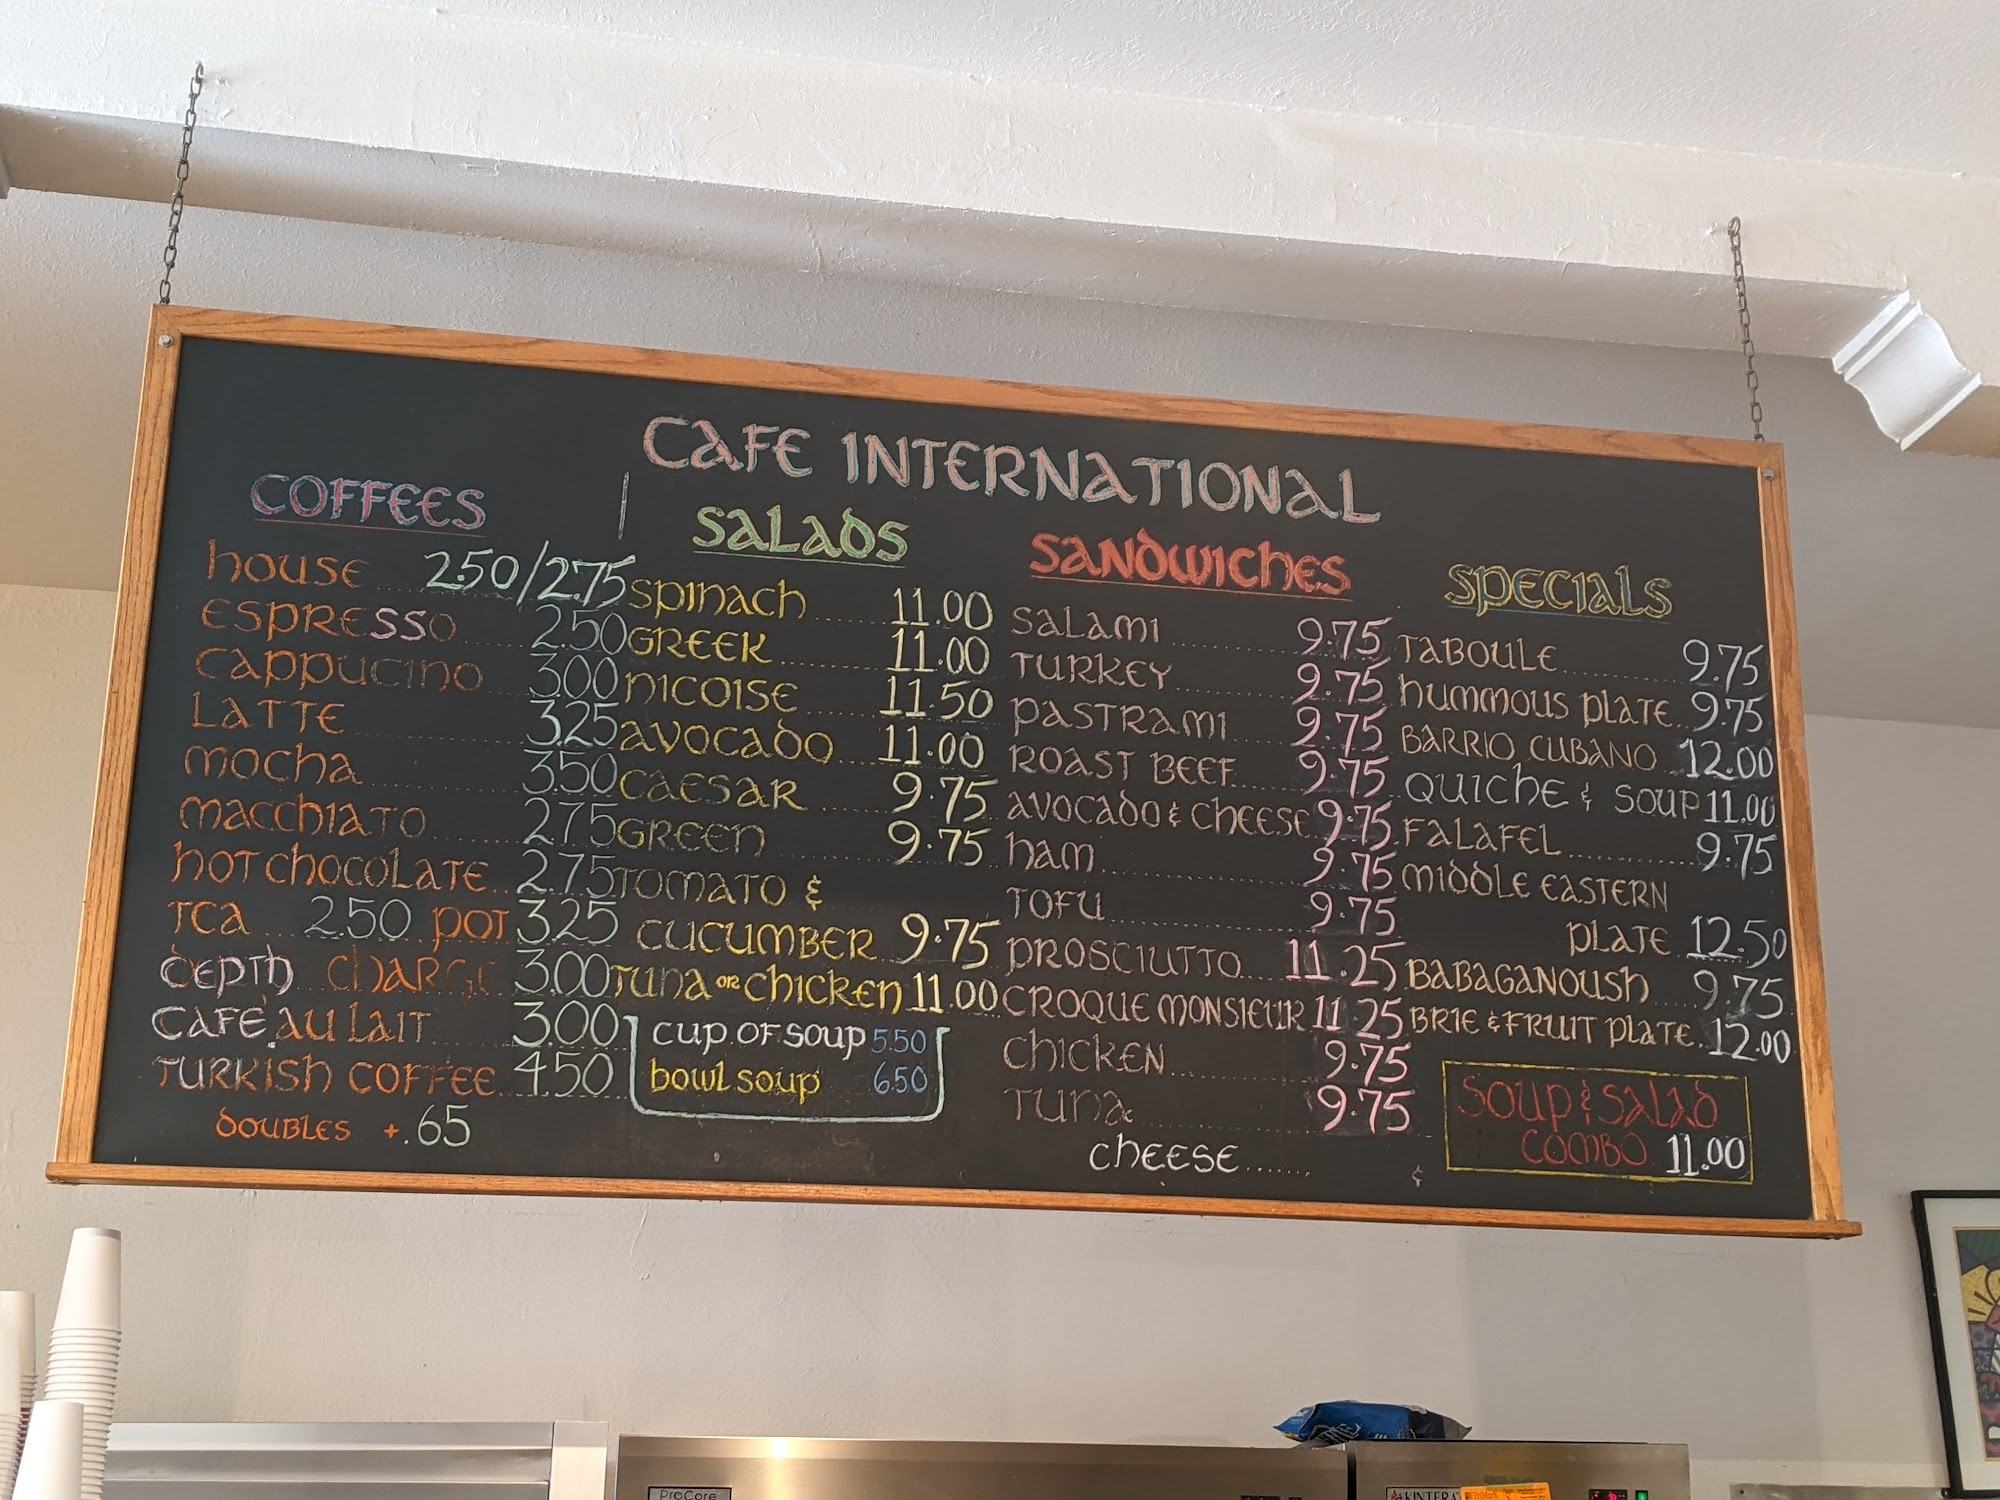 CAFE INTERNATIONAL
COFFEES
HOUSE 2.50/2.75
ESPRESSO 2.50
CAPPUCINO 3.00
LATTE 3.25
MOCHA 3.50
MACCHIATO 2.75
HOT CHOCOLATE 2.75
TEA 2.50 POT 3.25
DEPTH CHARGE 3.00
CAFÉ AU LAIT 3.00
TURKISH COFFEE 4.50
DOUBLES +.65
SALADS
SPINACH 11.00
GREEK 11.00
NICOISE 11.50
AVOCADO 11.00
CAESAR 9.75
GREEN 9.75
TOMATO &
CUCUMBER 9.75
TUNA OR CHICKEN 11.00
CUP OF SOUP 5.50
BOWL SOUP 6.50
SANDWICHES
SALAMI 9.75
TURKEY 9.75
PASTRAMI 9.75
ROAST BEEF 9.75
AVOCADO & CHEESE 9.75
HAM 9.75
TOFU 9.75
PROSCIUTTO 11.25
CROQUE MONSIEUR 11.25
CHICKEN 9.75
TUNA 9.75
CHEESE.......
&
SPECIALS
TABOULE 9.75
HUMMOUS PLATE 9.75
BARRIO CUBANO 12.00
QUICHE & SOUP 11.00
FALAFEL 9.75
MIDDLE EASTERN
PLATE 12.50
BABAGANOUSH 9.75
BRIE & FRUIT PLATE 12.00
SOUP & SALAD
COMBO 11.00
ProCore